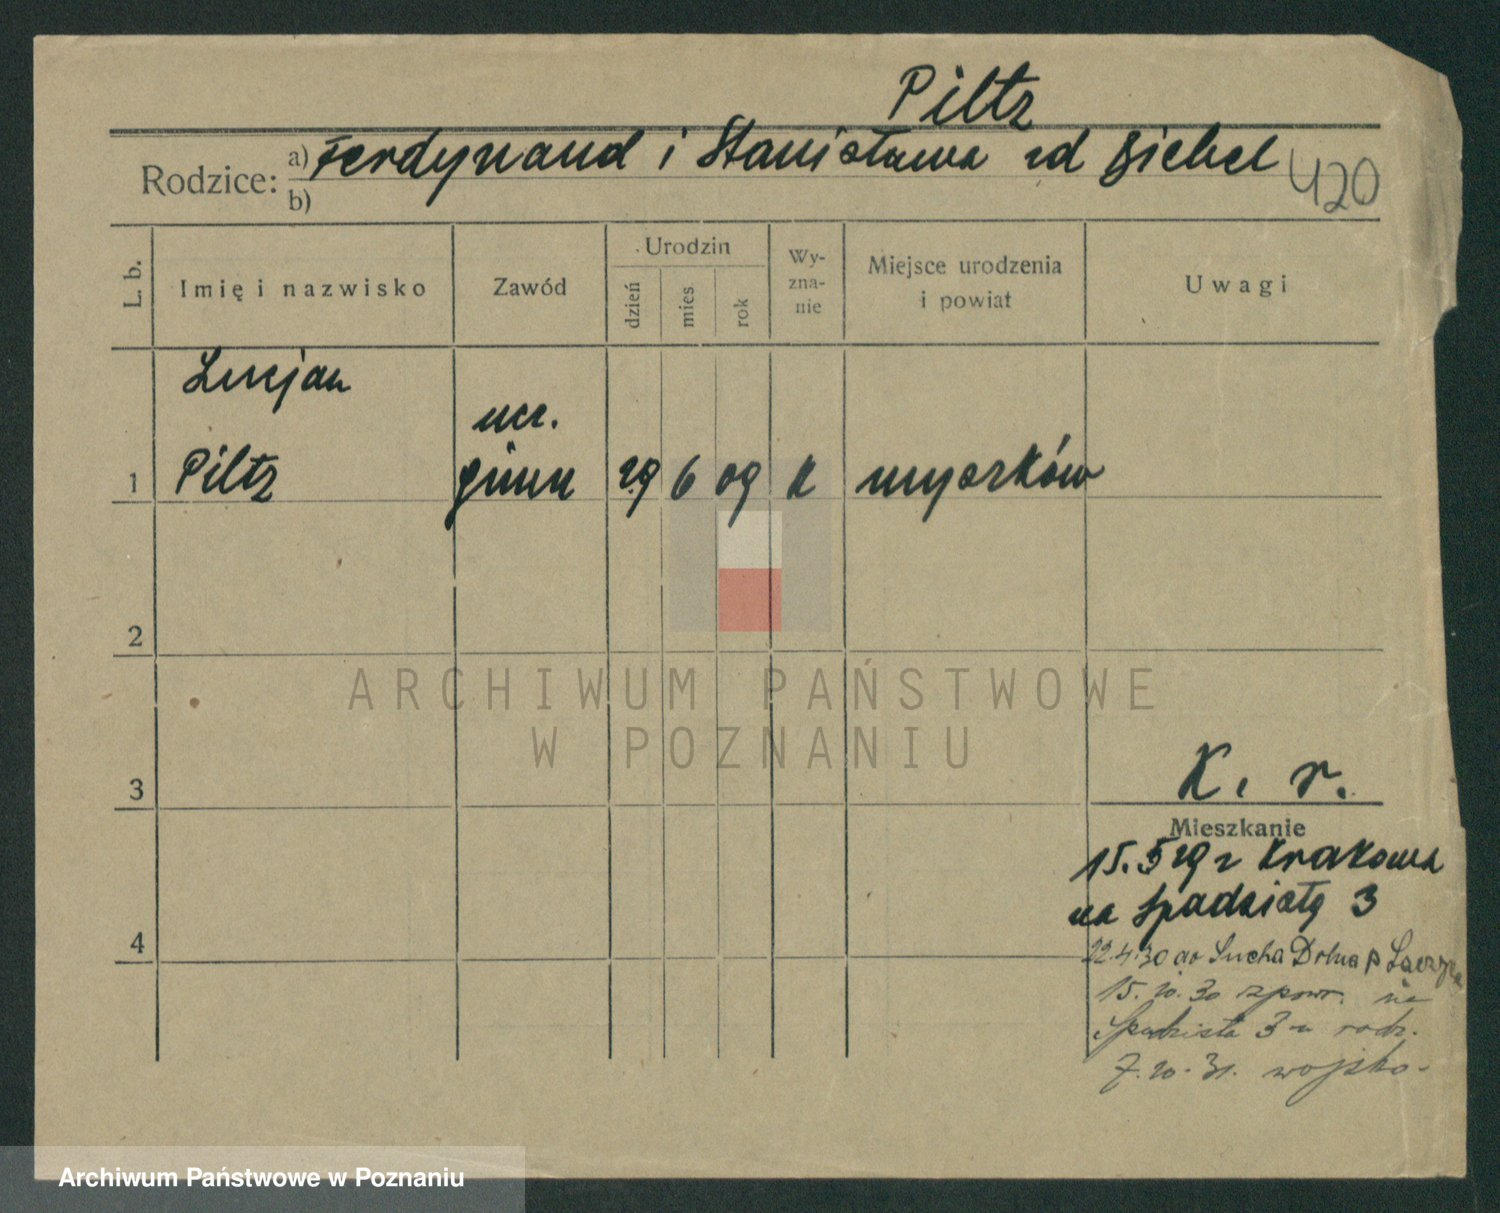 Piltz
Rodzice: a) Ferdynand i Stanisława zd Giebel 420
b)
L. b. Imię i nazwisko Zawód Urodzin dzień mies rok Wy-zna-nie Miejsce urodzenia i powiat Uwagi
Lucjan
ucz.
1 Piltz gimn 29 6 09 k
2
3
K. r.
Mieszkanie
15.5 29 z Krakowa
na Spadzistą 3
4
22.4.30 do Sucha Dolna p
15.10.30 zpowr. na
Spadzista 3 rodz.
7.10.31. wojsko.
ARCHIWUM PAŃSTWOWE
W POZNANIU
Archiwum Państwowe w Poznaniu